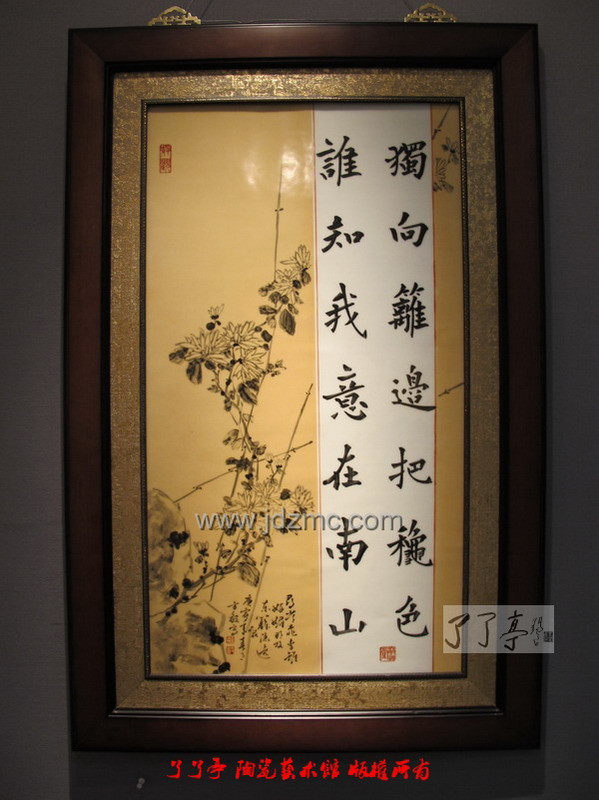 獨向籬邊把穐色
誰知我意在南山
www.jdzmc.com
了了亭
了了亭 陶瓷藝术館 版權所有